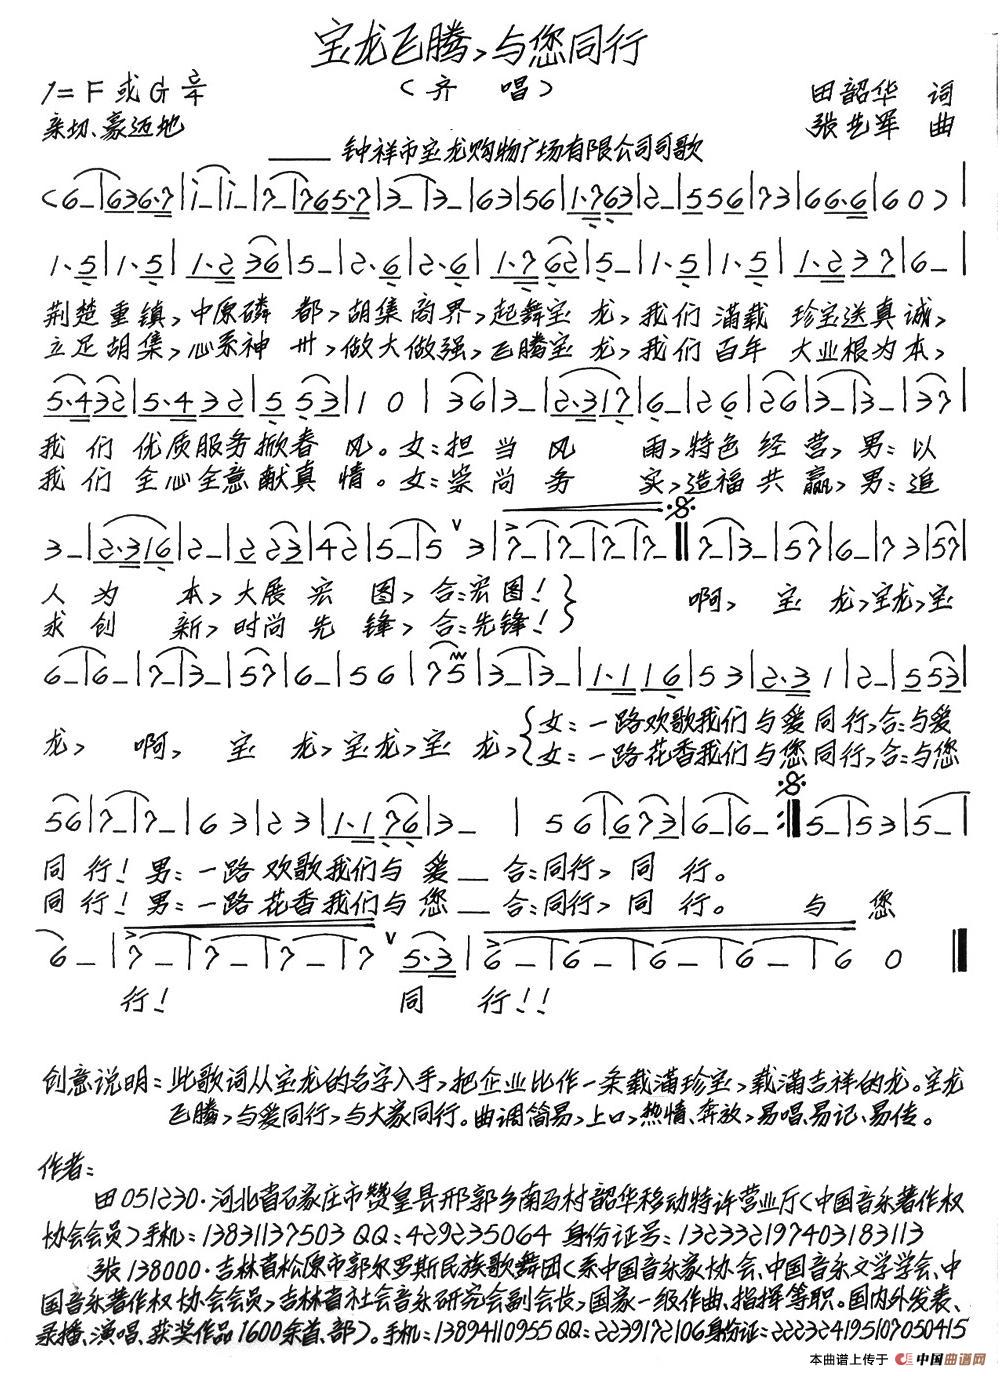 宝龙飞腾,与您同行
(齐 唱)
1=F或G 2/4
亲切、豪迈地
田韶华 词
张艺军 曲
——钟祥市宝龙购物广场有限公司司歌
荆楚重镇,中原磷都,胡集商界,起舞宝龙,我们满载珍宝送真诚,
立足胡集,心系神州,做大做强,飞腾宝龙,我们百年大业根为本,
我们优质服务掀春风。女:担当风雨,特色经营,男:以
我们全心全意献真情。女:崇尚务实,造福共赢,男:追
人为本,大展宏图,合:宏图! 啊,宝龙,宝龙,宝
求创新,时尚先锋,合:先锋!
龙, 啊, 宝龙,宝龙,宝龙,
女:一路欢歌我们与爱同行,合:与爱
女:一路花香我们与您同行,合:与您
同行!男:一路欢歌我们与爱——合:同行,同行。
同行!男:一路花香我们与您——合:同行,同行。 与您
行! 同行!!
创意说明:此歌词从宝龙的名字入手,把企业比作一条载满珍宝,载满吉祥的龙。宝龙
飞腾,与爱同行,与大家同行。曲调简易,上口,热情、奔放,易唱、易记、易传。
作者:
田051230·河北省石家庄市赞皇县邢郭乡南马村韶华移动特许营业厅(中国音乐著作权
协会会员)手机:13831137503 QQ:429235064 身份证号:132332197403183113
张138000·吉林省松原市郭尔罗斯民族歌舞团(系中国音乐家协会、中国音乐文学学会、中
国音乐著作权协会会员,吉林省社会音乐研究会副会长,国家一级作曲、指挥等职。国内外发表、
录播、演唱、获奖作品1600余首、部)。手机:13894110955 QQ:2239172106 身份证:222324195107050415
本曲谱上传于 中国曲谱网